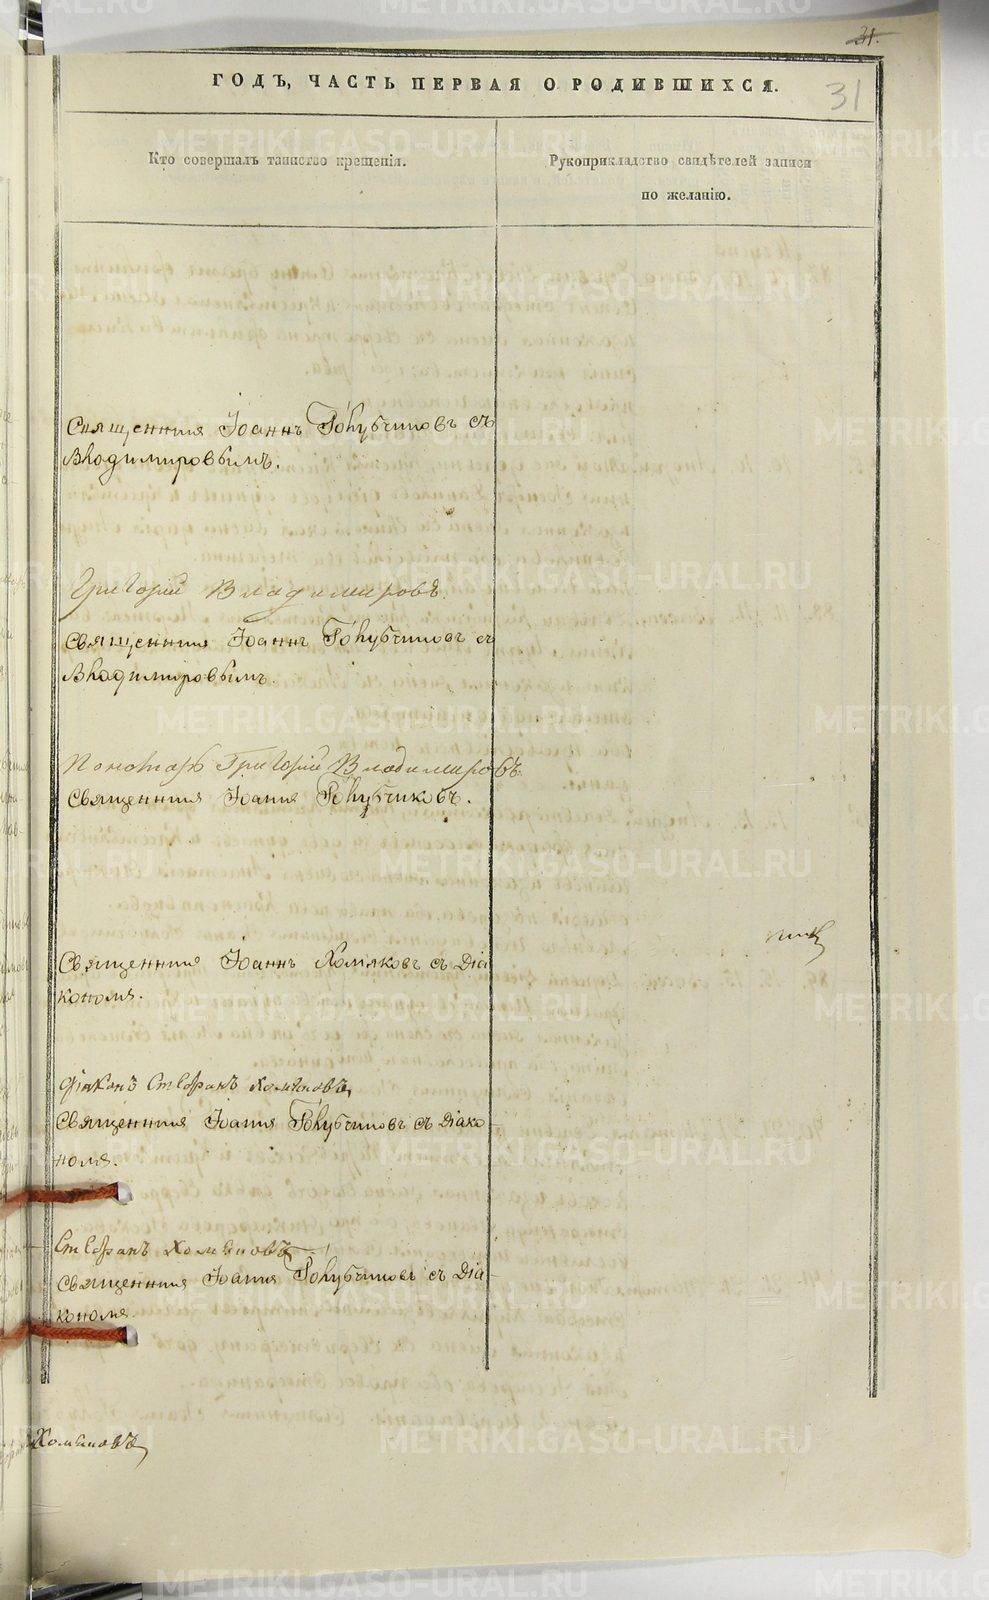 31.
31
ГОДЪ, ЧАСТЬ ПЕРВАЯ О РОДИВШИХСЯ.
Кто совершалъ таинство крещенія.
Рукоприкладство свидѣтелей записи
по желанію.
Священникъ Іоаннъ Голубчиковъ съ
Владимировымъ.
Григорій Владимировъ.
Священникъ Іоаннъ Голубчиковъ съ
Владимировымъ.
Пономарь Григорій Владимировъ.
Священникъ Іоаннъ Голубчиковъ.
Священникъ Іоаннъ Хомяковъ съ Діа
кономъ.
Діяконъ Стефанъ Хомяковъ
Священникъ Іоаннъ Голубчиковъ съ Діако
номъ.
Стефанъ Хомяковъ
Священникъ Іоаннъ Голубчиковъ съ Діа
кономъ
Хомяковъ
METRIKI.GASO-URAL.RU